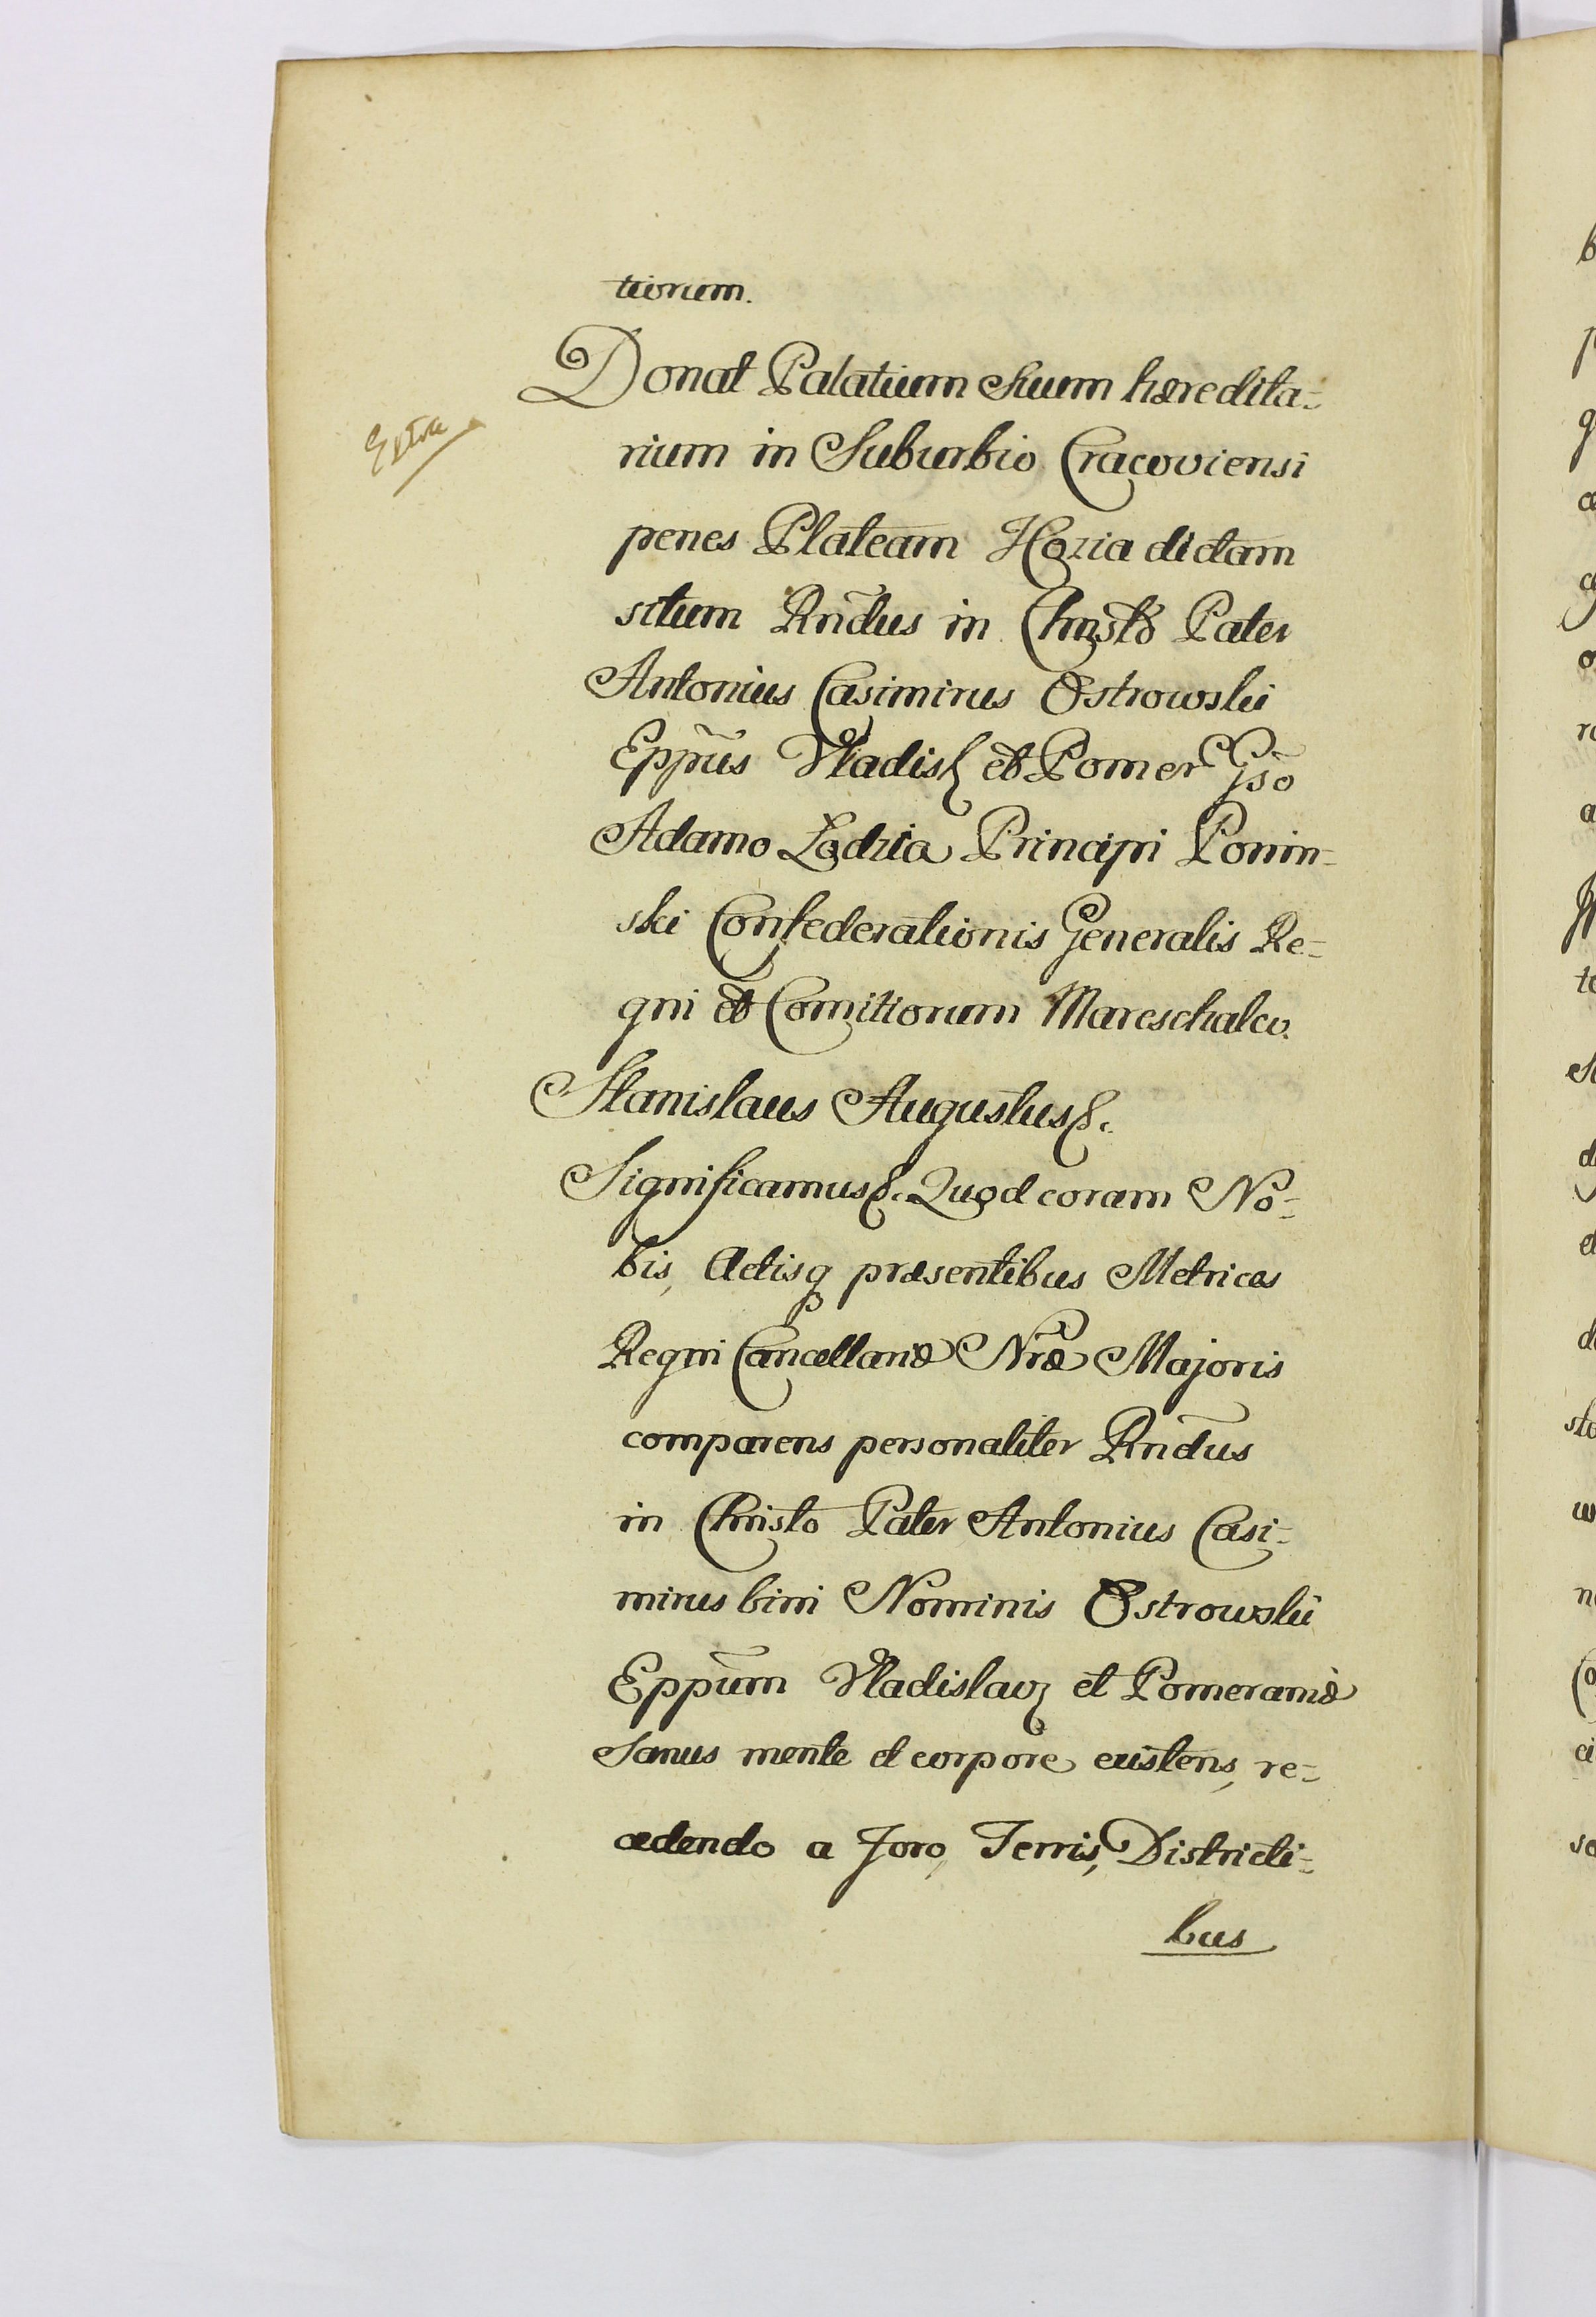 tiorum.
Donat Palatium Suum hæredita=
Extra
rium in Suburbio Cracoviensi
penes Plateam Hozia dictam
situm Rndus in Christo Pater
Antonius Casimirus Ostrowski
Eppus Vladisl et Pomer Gso
Adamo Lodzia Principi Ponin=
ski Confederationis Generalis Re=
gni et Comitiorum Mareschalco.
Stanislaus Augustus &.
Significamus &. Quod coram No=
bis, Actisq præsentibus Metrices
Regni Cancellariæ Nræ Majoris
comparens personaliter Rndus
in Christo Pater Antonius Casi=
mirus bini Nominis Ostrowski
Eppum Vladislav et Pomeraniæ
Sanus mente et corpore existens, re=
cedendo a Foro, Terris, Districti=
bus